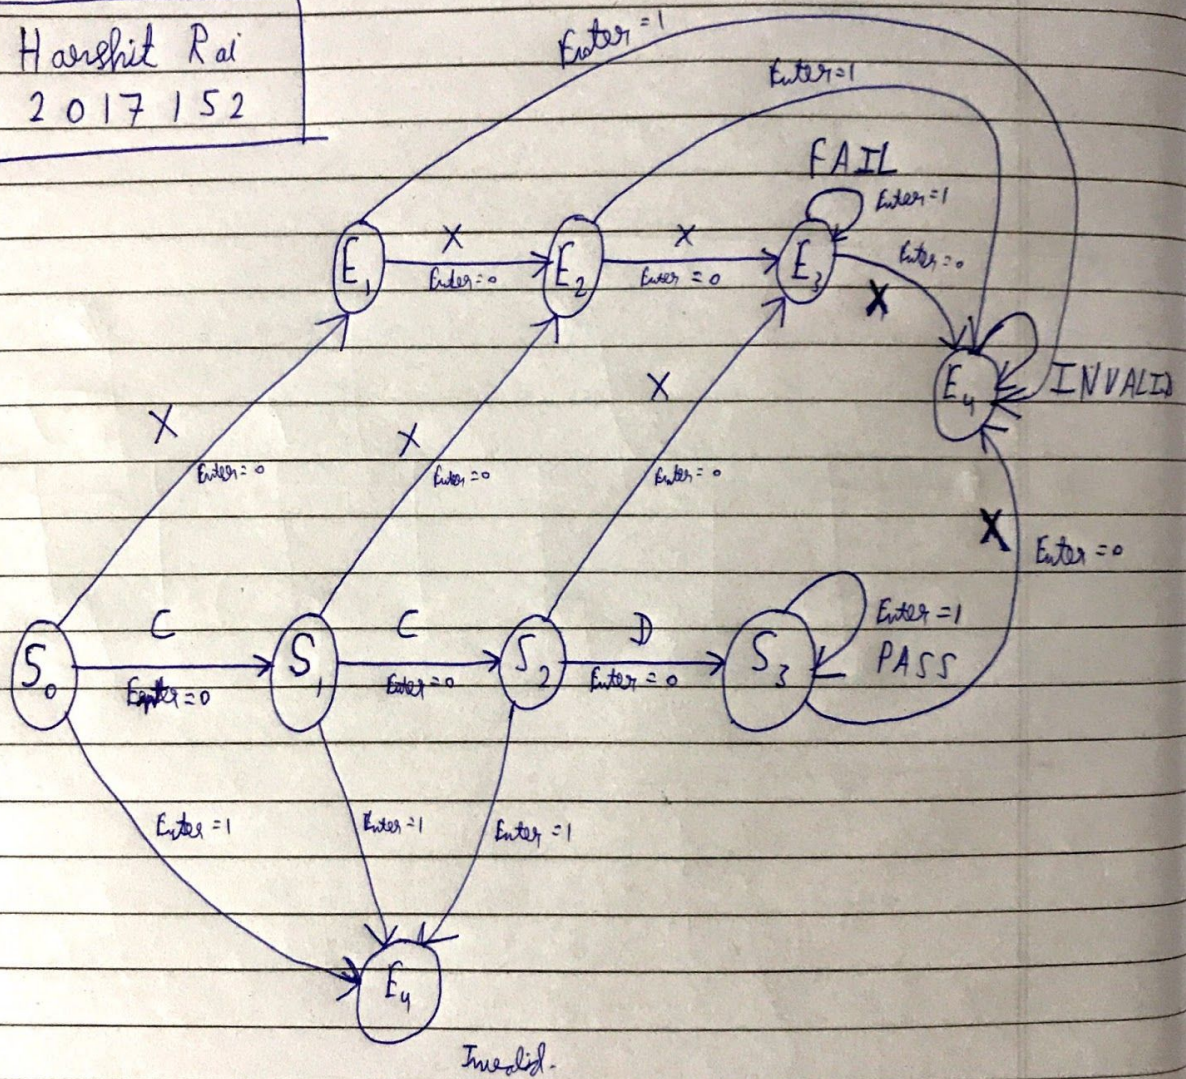 Harshit Rai
2017152
Enter = 1
Enter=1
FAIL
Enter=1
E1
X
Enter=0
E2
X
Enter = 0
E3
Enter=0
X
E4
INVALID
X
Enter=0
X
Enter=0
X
Enter=0
X
Enter=0
S0
C
Enter=0
S1
C
Enter=0
S2
D
Enter=0
S3
Enter=1
PASS
Enter=1
Enter=1
Enter=1
E4
Invalid.